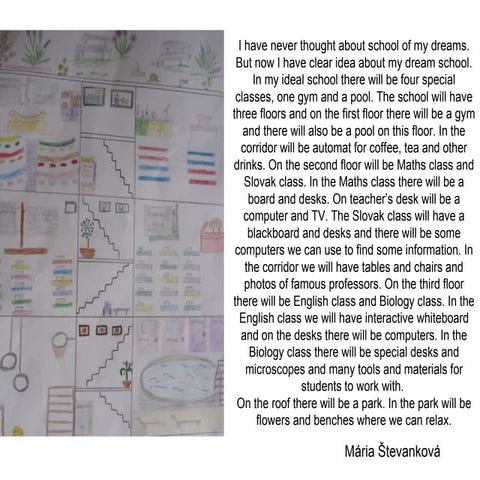 I have never thought about school of my dreams.
But now I have clear idea about my dream school.
In my ideal school there will be four special
classes, one gym and a pool. The school will have
three floors and on the first floor there will be a gym
and there will also be a pool on this floor. In the
corridor will be automat for coffee, tea and other
drinks. On the second floor will be Maths class and
Slovak class. In the Maths class there will be a
board and desks. On teacher's desk will be a
computer and TV. The Slovak class will have a
blackboard and desks and there will be some
computers we can use to find some information. In
the corridor we will have tables and chairs and
photos of famous professors. On the third floor
there will be English class and Biology class. In the
English class we will have interactive whiteboard
and on the desks there will be computers. In the
Biology class there will be special desks and
microscopes and many tools and materials for
students to work with.
On the roof there will be a park. In the park will be
flowers and benches where we can relax.
Mária Števanková